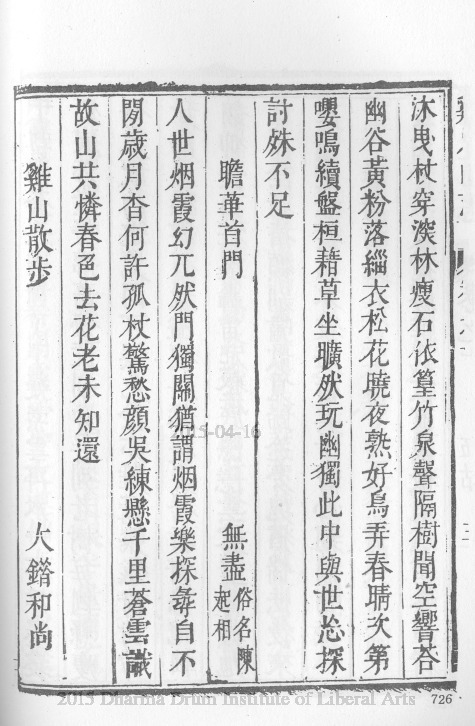 沐曳杖穿深林瘦石依篁竹泉聲隔樹聞空響荅
幽谷黃粉落緇衣松花曉夜熟好鳥弄春晴次第
嚶鳴續盤桓藉草坐曠然玩幽獨此中與世忘探
討殊不足
瞻華首門 無盡 俗名陳起相
人世烟霞幻兀然門獨關猶謂烟霞樂探尋自不
閒歲月杳何許孤杖驚愁顏吳練懸千里蒼雲識
故山共憐春色去花老未知還
雞山散步 大錯和尚
2015-04-16
2015 Dharma Drum Institute of Liberal Arts
726